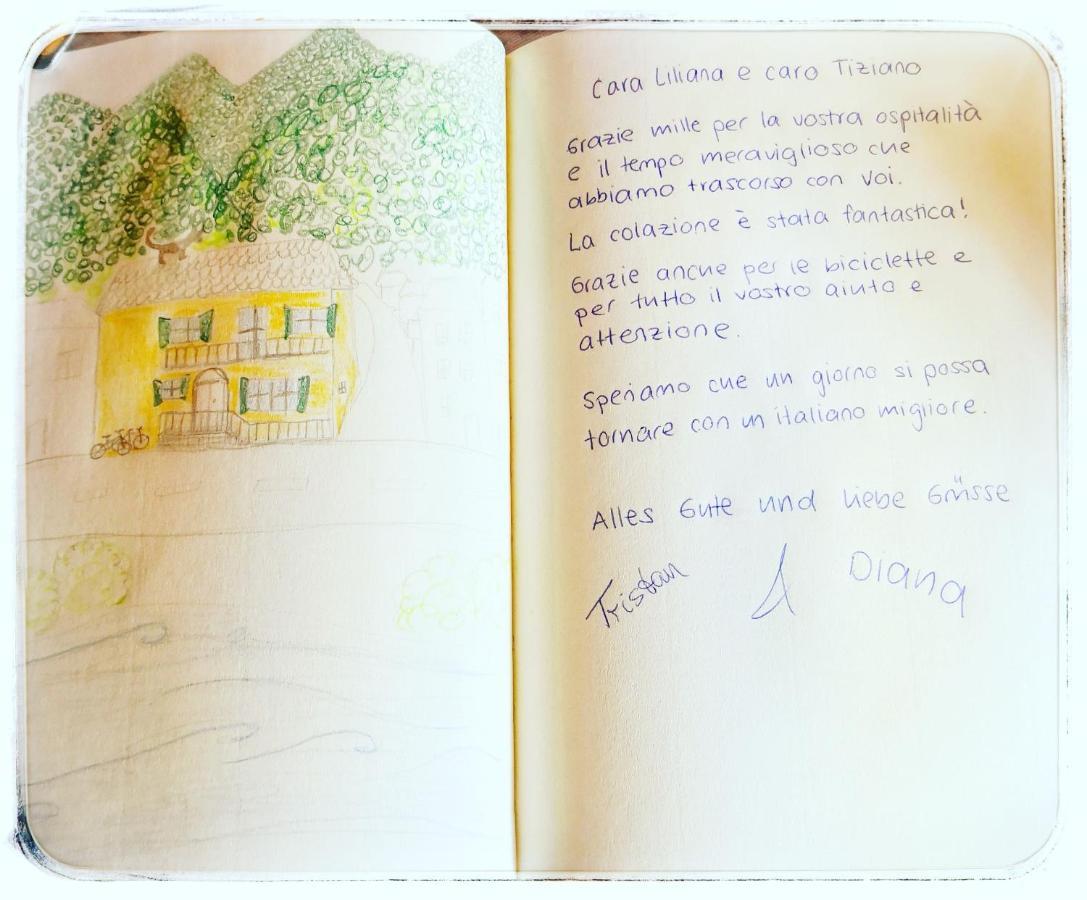 Cara Liliana e caro Tiziano
Grazie mille per la vostra ospitalità
e il tempo meraviglioso che
abbiamo trascorso con voi.
La colazione è stata fantastica!
Grazie anche per le biciclette e
per tutto il vostro aiuto e
attenzione.
Speriamo che un giorno si possa
tornare con un italiano migliore.
Alles Gute und liebe Grüsse
Tristan Diana